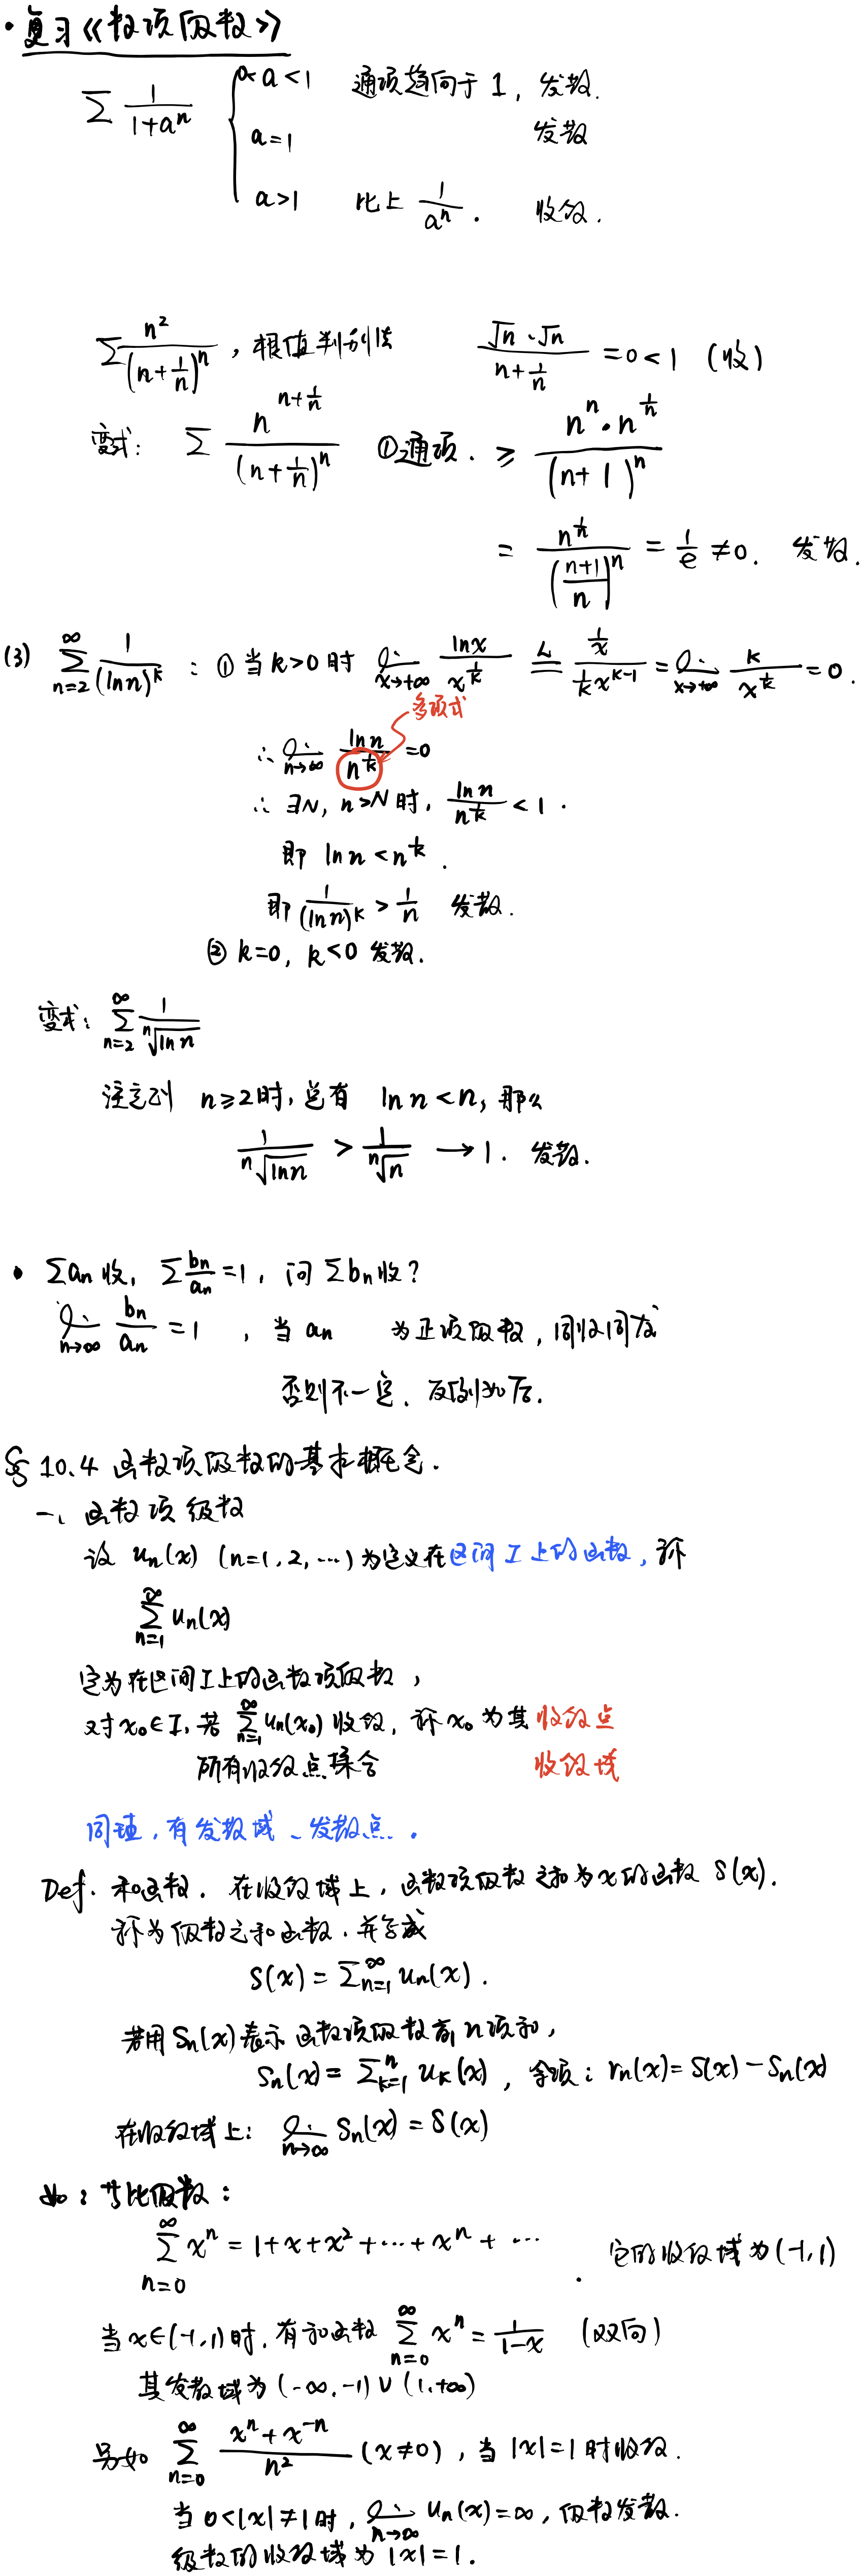 • 复习《数项级数》
∑ 1/(1+aⁿ) { 0<a<1 通项趋向于 1, 发散.
a=1 发散
a>1 比上 1/aⁿ. 收敛.
∑ n²/(n+1/n)ⁿ, 根值判别法 (ⁿ√n·ⁿ√n)/(n+1/n) = 0 < 1 (收)
变式: ∑ n^(n+1/n)/(n+1/n)ⁿ ①通项. ≥ (nⁿ·n^(1/n))/(n+1)ⁿ
= n^(1/n)/((n+1)/n)ⁿ = 1/e ≠ 0. 发散.
(3) ∑_{n=2}^∞ 1/(ln n)^k : ① 当 k>0 时 lim_{x→+∞} ln x/x^(1/k) =^L (1/x)/((1/k)x^(k-1)) = lim_{x→+∞} k/x^(1/k) = 0.
多项式
∴ lim_{n→∞} ln n/n^(1/k) = 0
∴ ∃N, n>N 时, ln n/n^(1/k) < 1.
即 ln n < n^(1/k).
即 1/(ln n)^k > 1/n 发散.
② k=0, k<0 发散.
变式: ∑_{n=2}^∞ 1/ⁿ√(ln n)
注意到 n≥2时, 总有 ln n < n, 那么
1/ⁿ√(ln n) > 1/ⁿ√n → 1. 发散.
• ∑aₙ 收, ∑ bₙ/aₙ = 1, 问 ∑bₙ收?
lim_{n→∞} bₙ/aₙ = 1, 当 aₙ 为正项级数, 同收同发
否则不一定. 反例如后.
§ 10.4 函数项级数的基本概念.
一、函数项级数
设 uₙ(x) (n=1, 2, ⋯) 为定义在区间 I 上的函数, 称
∑_{n=1}^∞ uₙ(x)
定为在区间I上的函数项级数,
对 x₀∈I, 若 ∑_{n=1}^∞ uₙ(x₀) 收敛, 称 x₀ 为其收敛点
所有收敛点集合 收敛域
同理, 有发散域、发散点.
Def. 和函数. 在收敛域上, 函数项级数之和为x的函数 S(x).
称为级数之和函数. 并写成
S(x) = ∑_{n=1}^∞ uₙ(x).
若用 Sₙ(x) 表示函数项级数前n项和,
Sₙ(x) = ∑_{k=1}^n u_k(x), 余项: rₙ(x) = S(x) − Sₙ(x)
在收敛域上: lim_{n→∞} Sₙ(x) = S(x)
如: 等比级数:
∑_{n=0}^∞ xⁿ = 1+x+x²+⋯+xⁿ+⋯. 它的收敛域为(-1,1)
当 x∈(-1,1)时, 有和函数 ∑_{n=0}^∞ xⁿ = 1/(1-x) (双向)
其发散域为 (-∞,-1)∪(1,+∞)
另如 ∑_{n=0}^∞ (xⁿ+x⁻ⁿ)/n² (x≠0), 当 |x|=1 时收敛.
当 0<|x|≠1时, lim_{n→∞} uₙ(x)=∞, 级数发散.
级数的收敛域为 |x|=1.